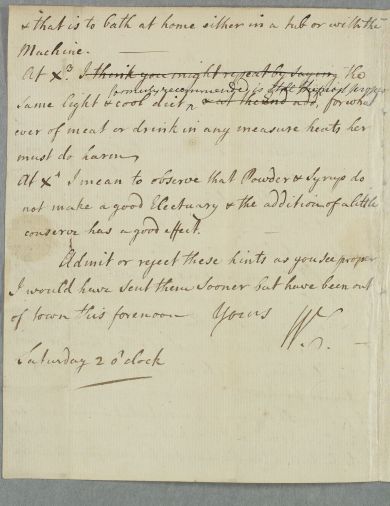 & that is to bath at home either in a tub or with the
Machine.
At X.3 I think you might repeat by saying the
formerly recommended is still the most proper
same light & cool diet & at the end add, for what
ever of meat or drink in any measure heats her
must do harm,
At X4 I mean to observe that Powder & Syrups do
not make a good Electuary & the addition of a little
conserve has a good effect.
Admit or reject these hints as you see proper
I would have sent them sooner but have been out
of town this forenoon Yours W.
Saturday 2 o'clock